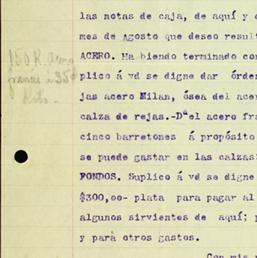 las notas de caja, de aquí y d
mes de Agosto que deseo result
ACERO. Ha biendo terminado con
plico á vd se digne dar órde
jas acero Milan, ósea del acer
calza de rejas.-Dª el acero fra
cinco barretones á propósito
se puede gastar en las calzas:
FONDOS. Suplico á vd se digne
$300,oo-plata para pagar al
algunos sirvientes de aquí; p
y para otros gastos.
Con mis r
150 K.